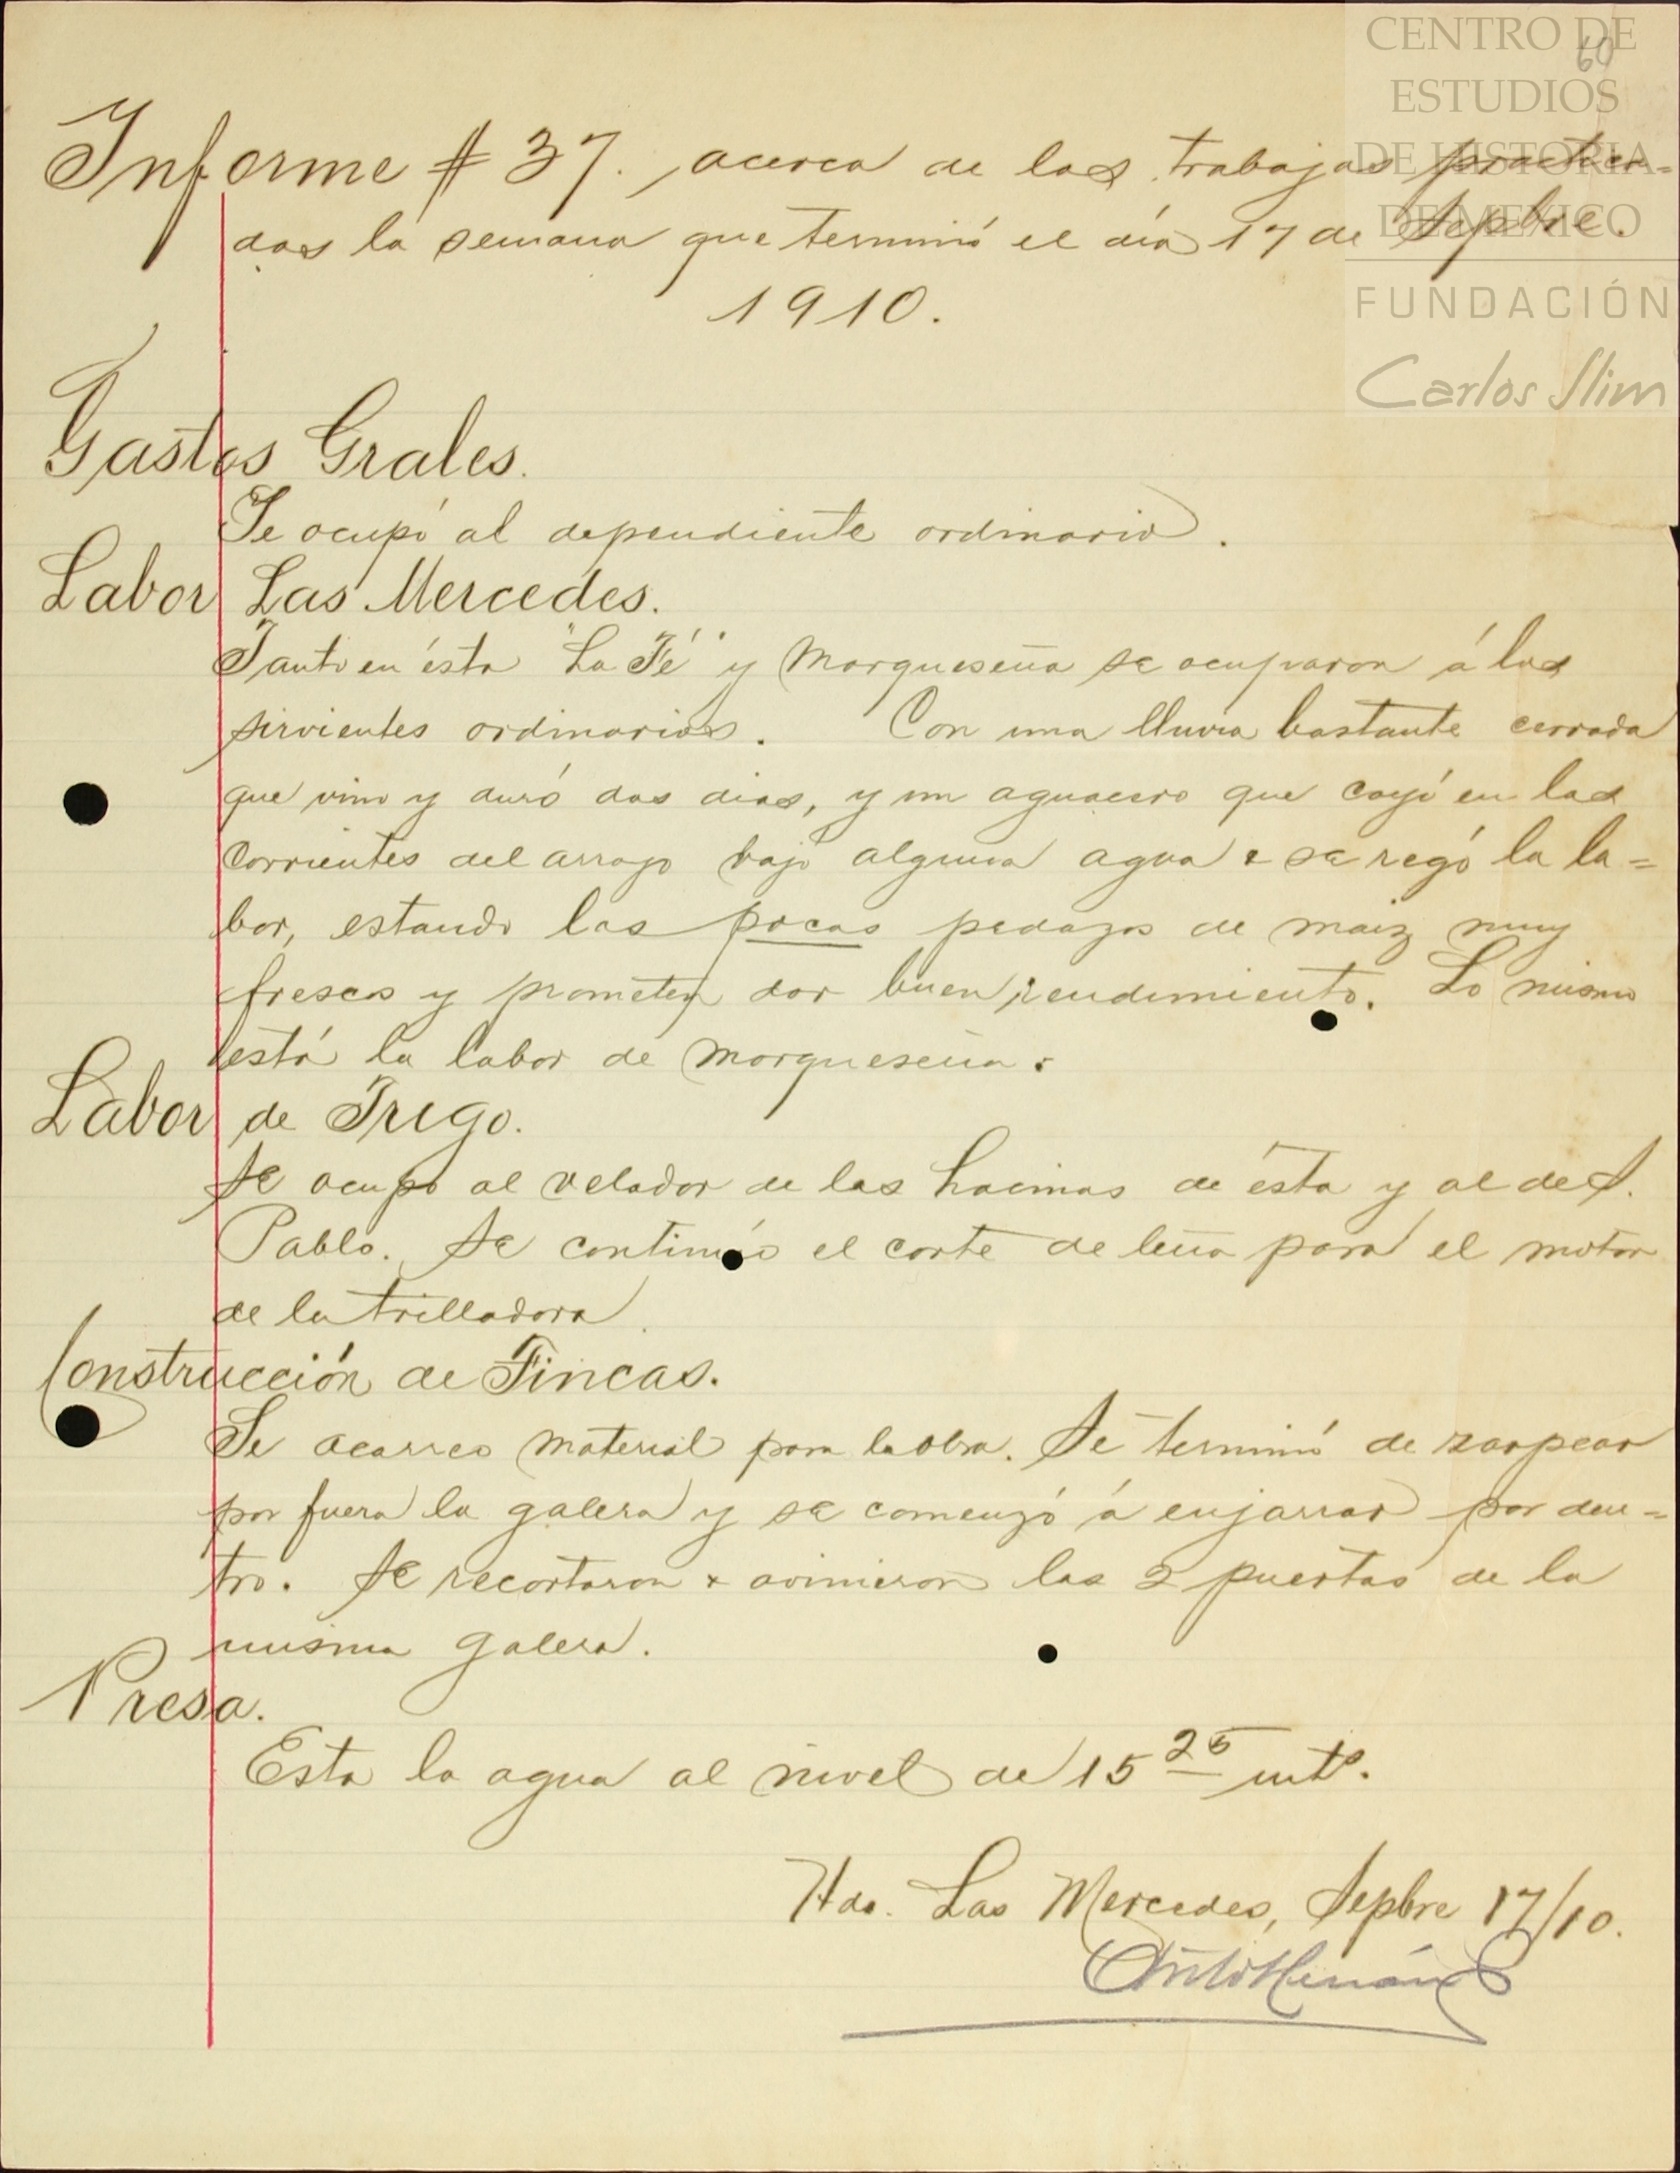 CENTRO DE
ESTUDIOS
DE HISTORIA
DE MEXICO
FUNDACIÓN
Carlos Slim
60
Informe # 37. acerca de los trabajos practica=
dos la semana que terminó el día 17 de Sepbre.
1910.
Gastos Grales.
Se ocupó al dependiente ordinario.
Labor Las Mercedes.
Tanto en ésta "La Fé" y Marqueseña se ocuparon á los
sirvientes ordinarios. Con una lluvia bastante cerrada
que vino y duró dos dias, y un aguacero que cayó en las
corrientes del arroyo bajó alguna agua & se regó la la=
bor, estando los pocos pedazos de maiz muy
frescos y prometen dar buen rendimiento. Lo mismo
está la labor de Marqueseña.
Labor de Trigo.
Se ocupó al velador de las hacinas de ésta y al de S.
Pablo. Se continúo el corte de leña para el motor
de la trilladora.
Construcción de Fincas.
Se acarreo material para la obra. Se terminó de zarpear
por fuera la galera y se comenzó á enjarrar por den=
tro. Se recortaron & las 2 puertas de la
misma galera.
Presa.
Esta la agua al nivel de 15 25 mts.
Hda. Las Mercedes, Sepbre 17/10.